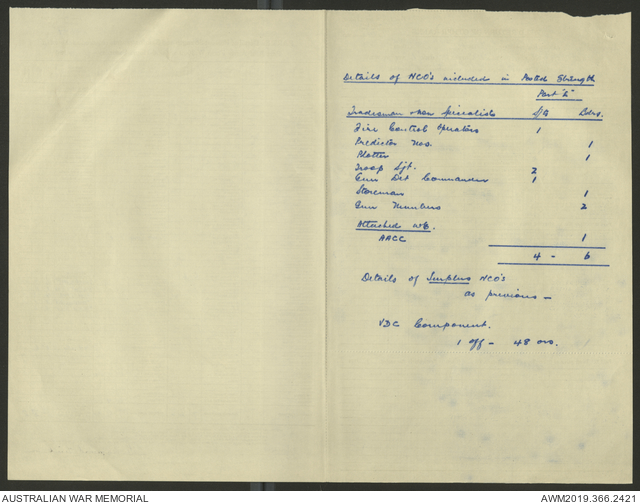 Details of NCO's included in Posted Strength
Part "L"
Tradesmen Specialists L/S Bdrs.
Fire Control Operators 1
Predictor Nos. 1
Plotter 1
Troop Sjt. 2
Gun Det Commander 1
Storeman 1
Gun Numbers 2
Attached
AACC 1
4 - 6
Details of Surplus NCO's
as previous -
VDC Component.
1 off - 48 ors.
AUSTRALIAN WAR MEMORIAL AWM2019.366.2421